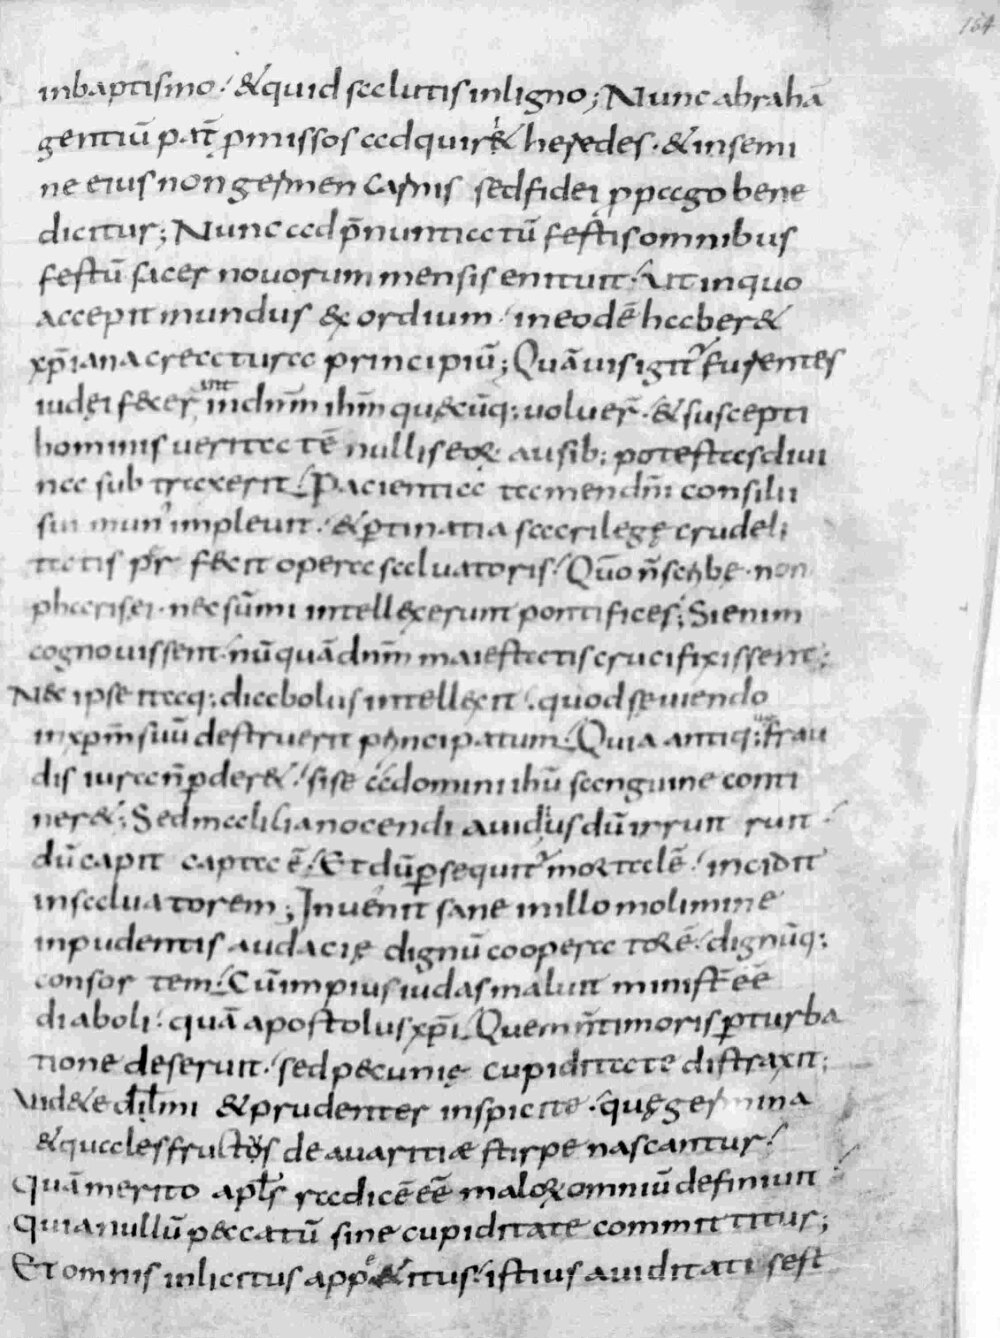 154
inbaptismo · & quid salutis inligno; Nunc abrahā
gentiū pat̄ ꝑmissos adquir& heredes · & insemi
ne eius non germen carnis sed fidei ꝓpago bene
dicitur; Nunc ad p̄nuntiatū festis omnibus
festū sacer nouorum mensis enituit · Ut inquo
accepit mundus exordium · ineodē haber&
xp̄iana creatura principiū; Quāuis igit᷑ furentes
iudęi fecer̄ unt indn̄m ihm̄ quęcūq: uoluer̄ · & suscepti
hominis ueritatē nullis eoꝝ ausib; potestas diui
na sub traxerit · Pacientia tamen dn̄i consilii
sui mun᷑ impleuit · & ꝑtinatia sacrilegę crudeli
tatis pr̄ fecit opera saluatoris · Quō n̄ scribę · non
pharisei · nec sūmi intellexerunt pontifices; Si enim
cognouissent · nūquā dn̄m maiestatis crucifixissent;
Nec ipse itaq: diabolus intellexit · quod sęuiendo
inxpm̄ suū destruerit principatum · Quia antiq: frau
dis iura n̄ ꝑder& · si se a domini ihū sanguine conti
ner&; Sed malitia nocendi auidus dū irruit ruit ·
dū capit captac̄ ē · Et dū ꝑsequit᷑ mortalē · incidit
insaluatorem; Inuenit sane inillo molimine
inpudentis audacię dignū cooperatorē · dignūq:
consor tem · Cū impius iudas maluit minist̄ eē
diaboli · quā apostolus xp̄i · Quem n̄ timoris ꝑturba
tione deseruit · sed pecunię cupiditate distraxit;
Uid&e dīl̄mi & prudenter inspicite · quę germina
& quales fructos de auaritiæ stirpe nascantur ·
Quā merito apl̄s radicē eē maloꝝ omniū definiuit
quia nullū peccatū sine cupiditate committitur;
Et omnis inlicitus app&itus · istius auiditati sest